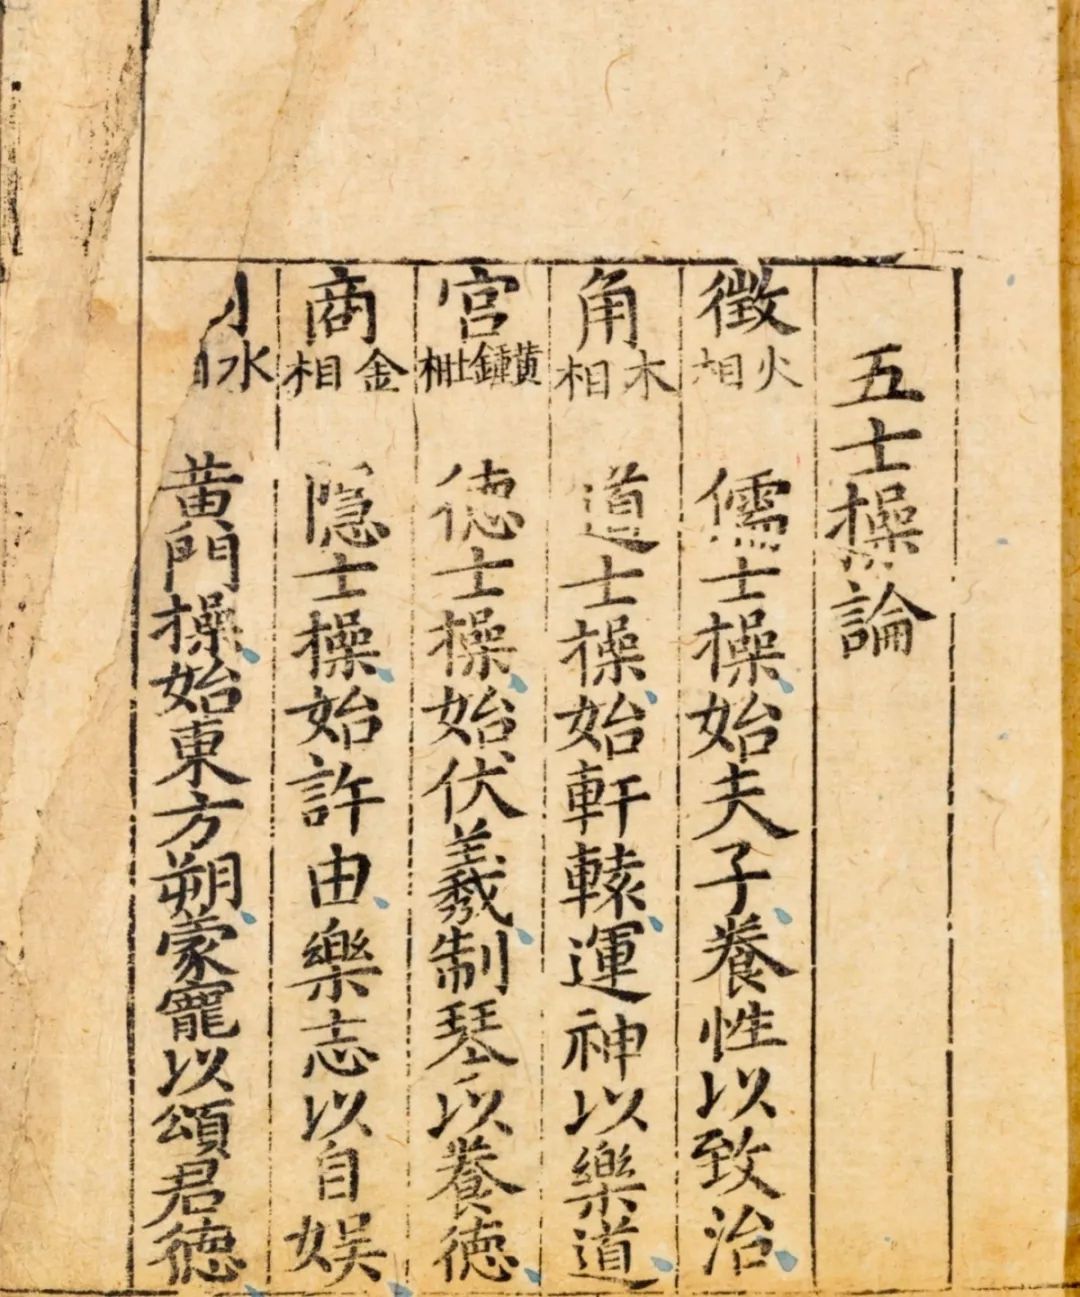 五士操論
徵 火相 儒士操始夫子養性以致治
角 木相 道士操始軒轅運神以樂道
宮 黃鍾土相 德士操始伏羲制琴以養德
商 金相 隱士操始許由樂志以自娛
水 黃門操始東方朔蒙寵以頌君德